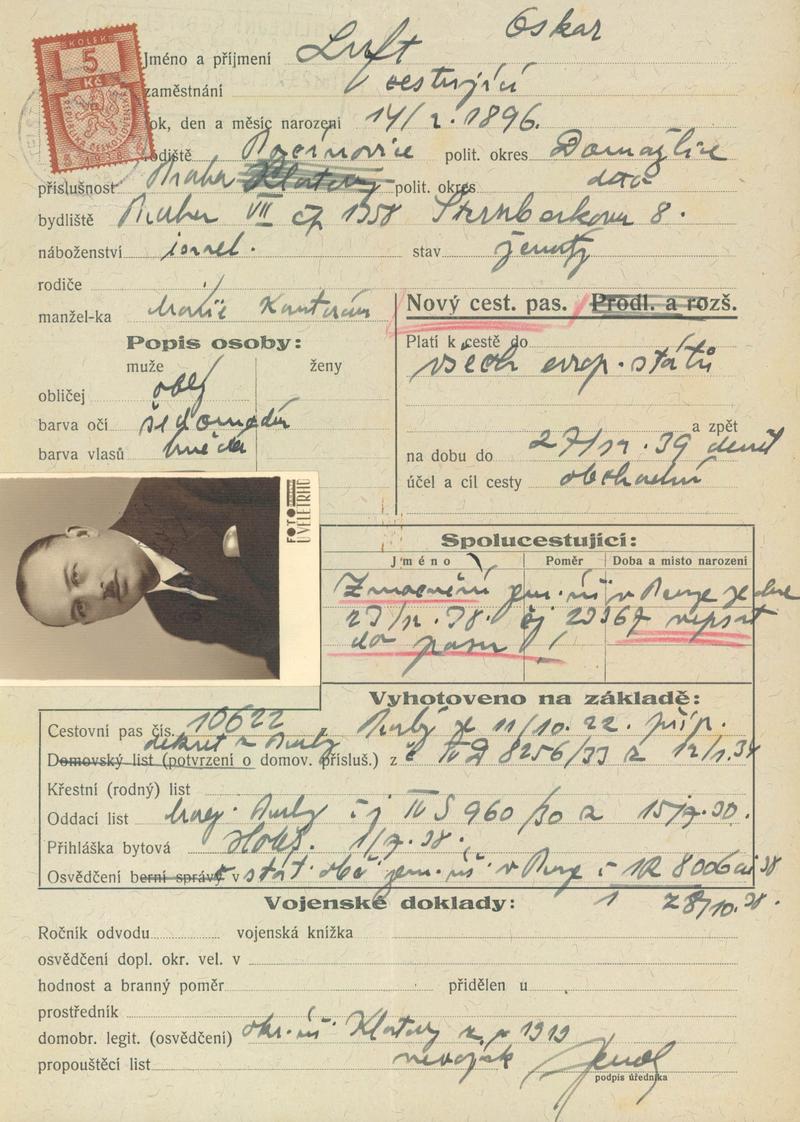 KOLEK
5
Kč
REPUBLIKA ČESKOSLOVENSKÁ
1938
Jméno a příjmení Luft Oskar
zaměstnání cestující
ok, den a měsíc narození 14/2.1896.
odiště polit. okres Domažlice
příslušnost Praha Klatovy polit. okres dtto
bydliště Praha VII čp 1358 Šternberkova 8.
náboženství israel. stav ženatý
rodiče
manžel-ka Marie Kantorová
Nový cest. pas. Prodl. a rozš.
Popis osoby:
muže ženy
obličej oblý
barva očí šedomodrá
barva vlasů hnědá
Platí k cestě do
všech evrop. států
a zpět
na dobu do 27/12.39
účel a cíl cesty obchodní
FOTO
U VELETRHU
Spolucestující:
Jméno Poměr Doba a misto narození
Zmocnění gen. v Praze ze dne
23/12.38. čj 29367 vepsat
do pasu!
Vyhotoveno na základě:
Cestovní pas čís. 10622 z 11/10.22.
dekret
Domovský list (potvrzení o domov. přísluš.) z č 8256/33 z 12/1.34
Křestní (rodný) list
Oddací list čj IV S 960/30 z 15/7.30.
Přihláška bytová 1/7.38.
Osvědčení berní správy v stát. obč. v Praze 8006 38
28/10.38.
Vojenské doklady:
Ročník odvodu vojenská knížka
osvědčení dopl. okr. vel. v
hodnost a branný poměr přidělen u
prostředník
domobr. legit. (osvědčení) okr. úř. Klatovy 1919
propouštěcí list nevoják
podpis úředníka